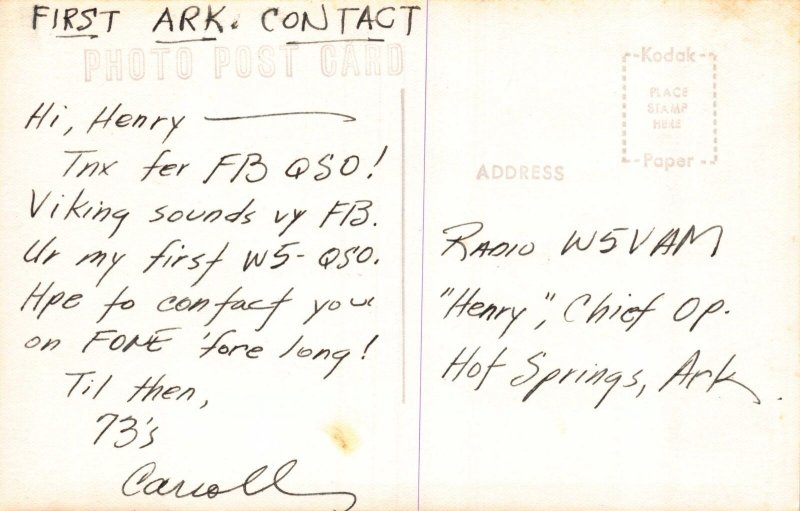 FIRST ARK. CONTACT
PHOTO POST CARD
Hi, Henry —
Tnx fer FB QSO!
Viking sounds vy FB.
Ur my first W5-QSO.
Hpe to contact you
on FONE 'fore long!
Til then,
73's
Carroll
Kodak
PLACE
STAMP
HERE
Paper
ADDRESS
RADIO W5VAM
"Henry", Chief Op.
Hot Springs, Ark.